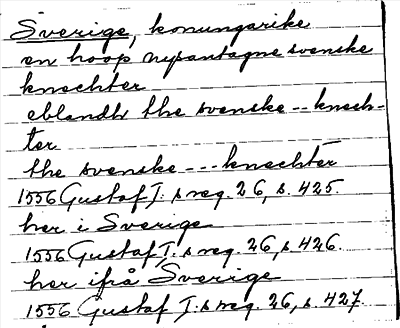 Sverige, konungarike
en hoop nyſantagne svenske
knechter
eblandh the svenske -- knech-
ter
the svenske --- knechter
1556 Gustaf I:s reg. 26, s. 425.
her i Sverige
1556 Gustaf I:s reg. 26, s. 426.
her ifrå Sverige
1556 Gustaf I:s reg. 26, s. 427.